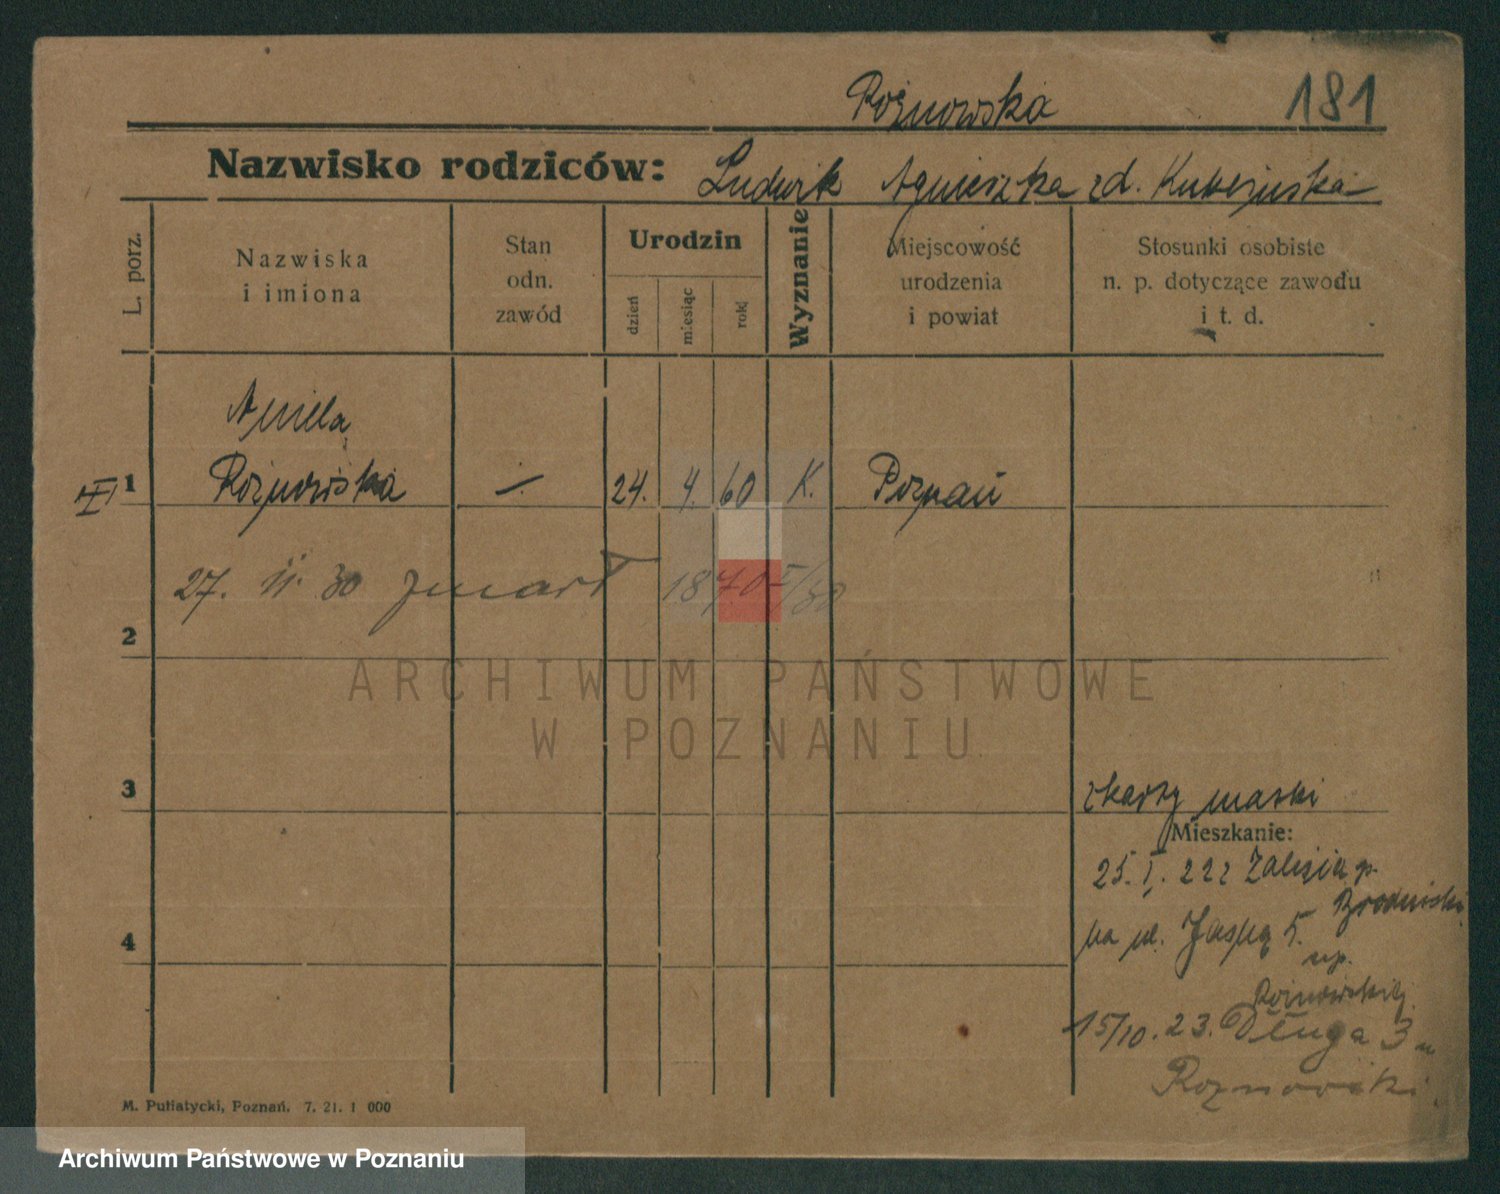 Rożnowska 181
Nazwisko rodziców: Ludwik Agnieszka zd.
L. porz.
Nazwiska
i imiona
Stan
odn.
zawód
Urodzin
dzień
miesiąc
rok
Wyznanie
Miejscowość
urodzenia
i powiat
Stosunki osobiste
n. p. dotyczące zawodu
i t. d.
Aniela
1 Rożnowska — 24. 4. 60 K. Poznań
27. 11. 30 zmarł 1870
2
3
Mieszkanie:
25. I. 222 Zalesia p.
Brodnicki
na ul. Jasną 5.
up.
Rożnowski
15/10. 23. Długa 3 u
Roznowski
4
M. Putiatycki, Poznań. 7. 21. 1 000
ARCHIWUM PAŃSTWOWE
W POZNANIU
Archiwum Państwowe w Poznaniu